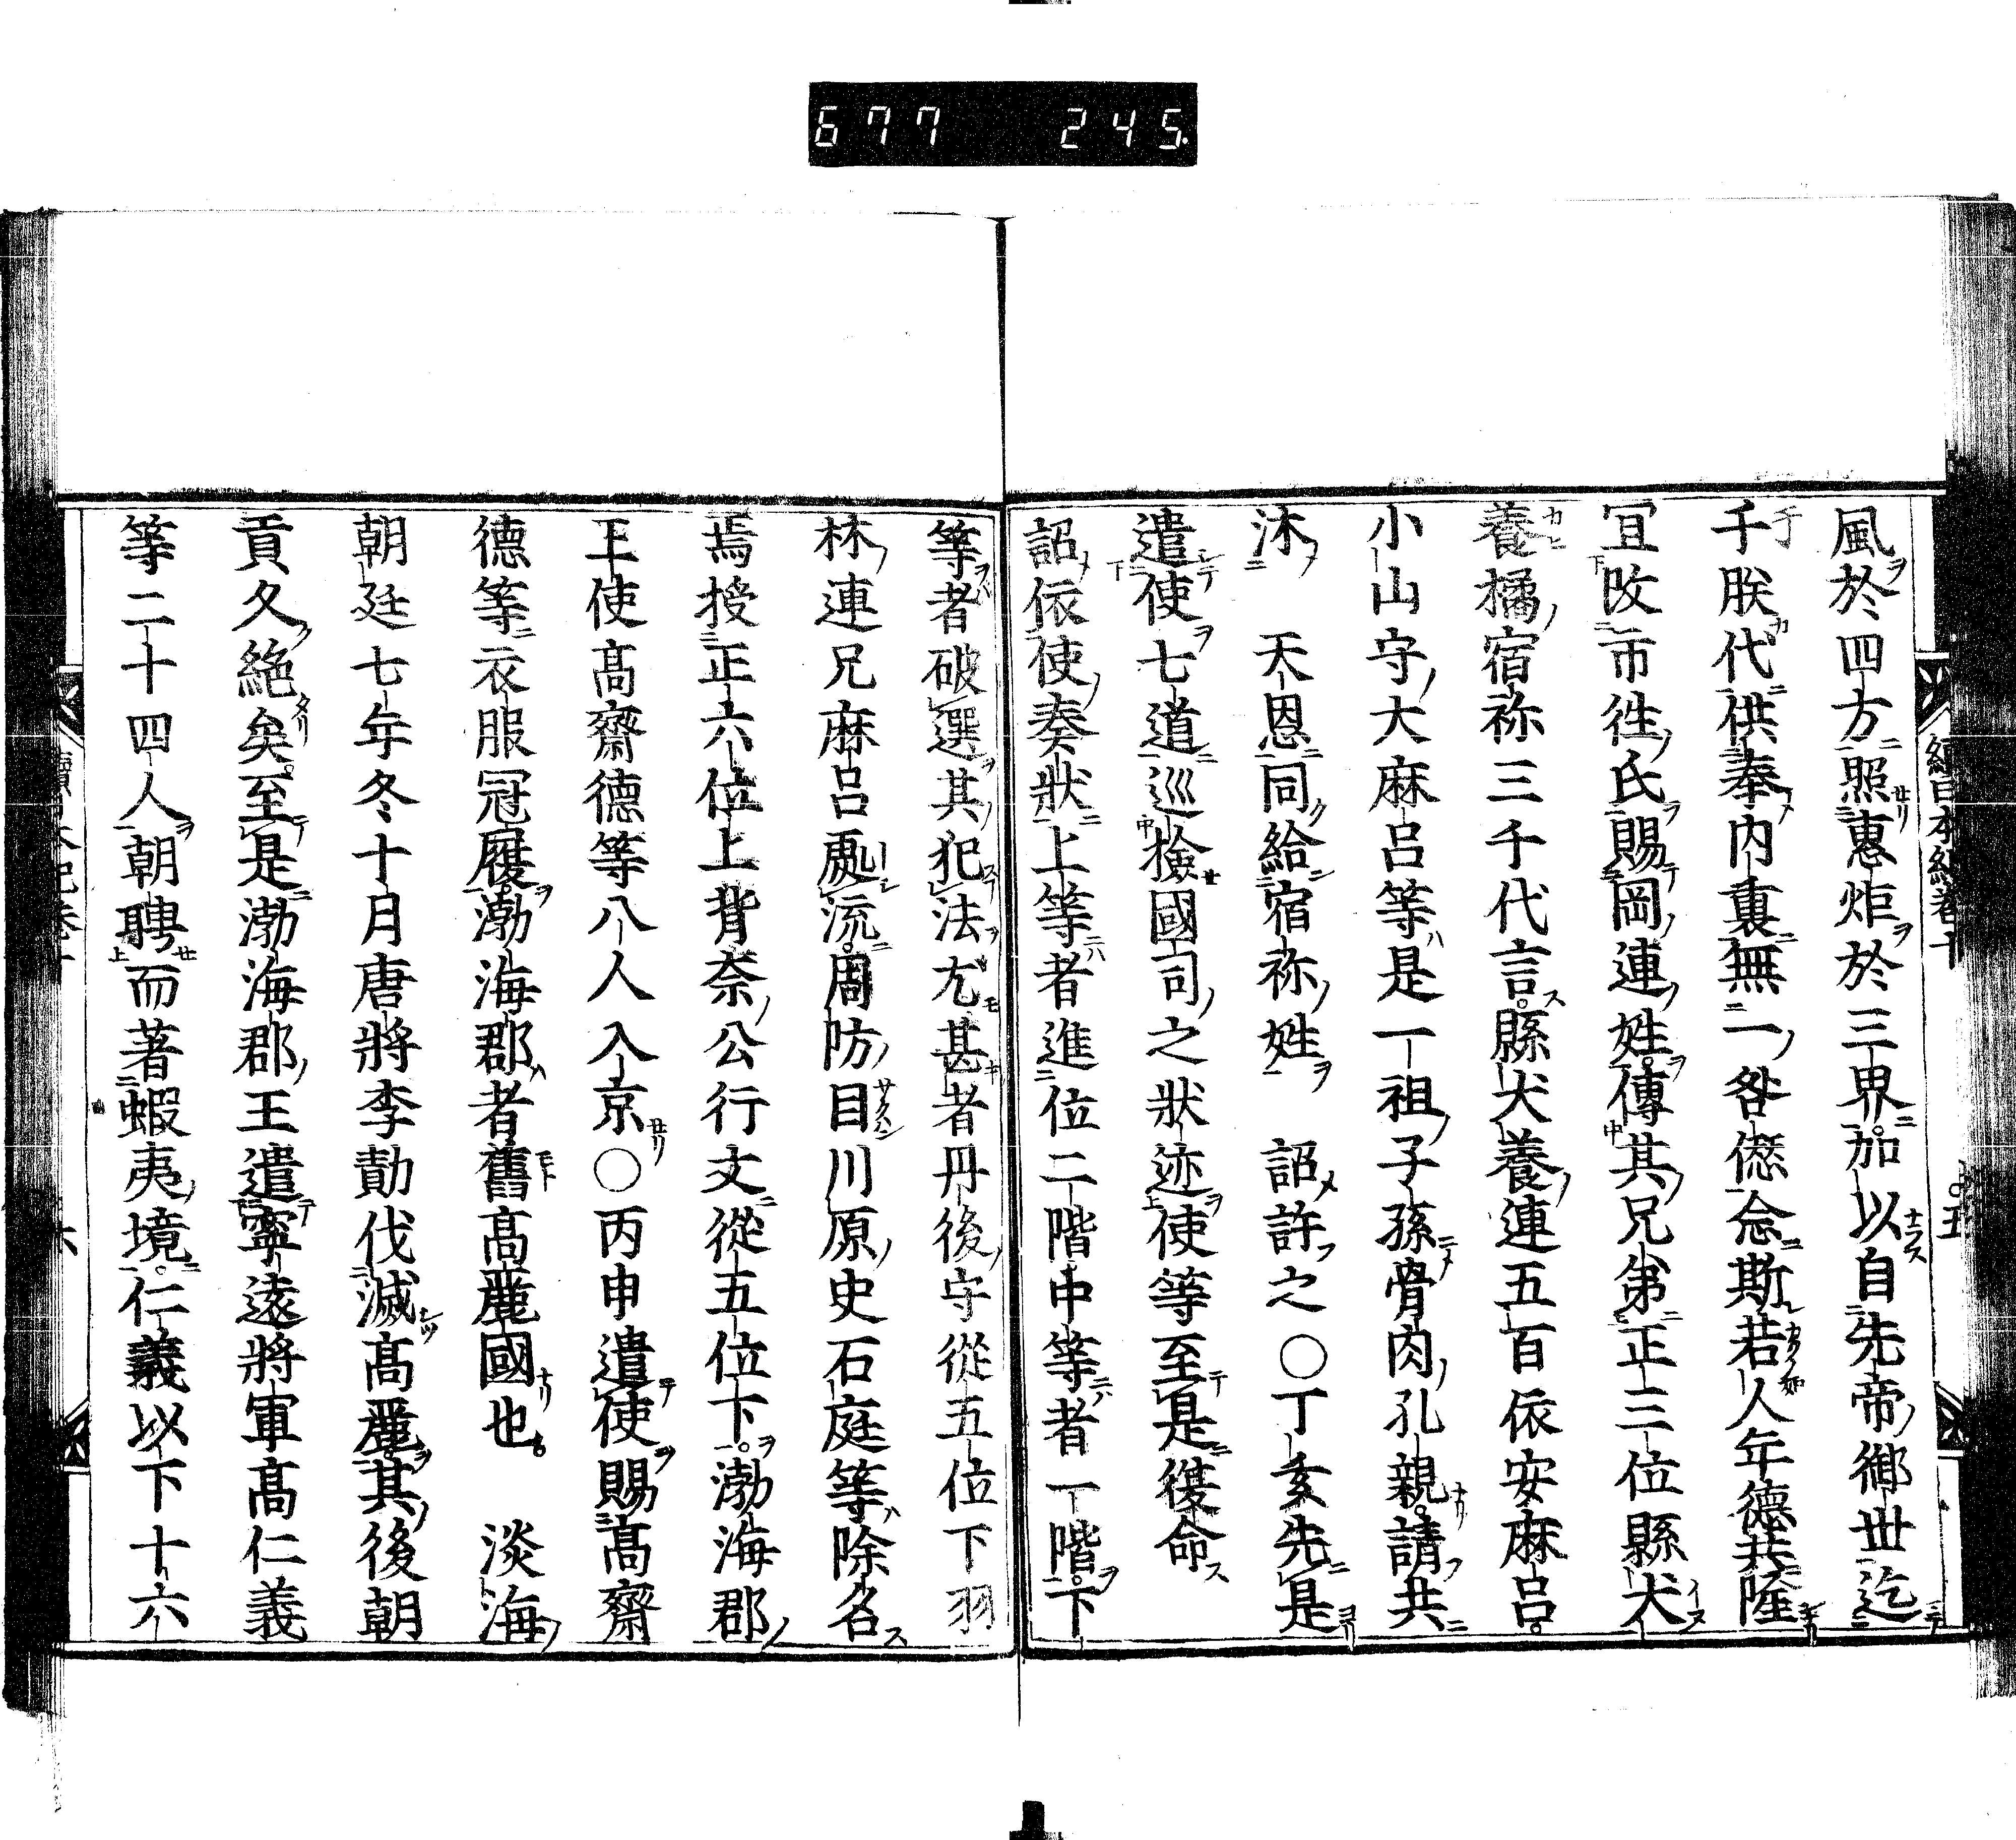 677 245
續日本紀卷十 五
風於四方照惠炬於三界加以自先帝御世迄
于朕代供奉内裏無一咎愆念斯若人年德共隆
宜改市徃氏賜岡連姓傳其兄弟正三位縣犬
養橘宿祢三千代言縣犬養連五百依安麻呂
小山守大麻呂等是一祖子孫骨肉孔親請共
沐 天恩同給宿祢姓 詔許之○丁亥先是
遣使七道巡撿國司之狀迹使等至是復命
詔依使奏狀上等者進位二階中等者一階下
等者破選其犯法尤甚者丹後守從五位下羽
林連兄麻呂處流周防目川原史石庭等除名
焉授正六位上背奈公行文從五位下渤海郡
王使髙齋德等八人入京○丙申遣使賜髙齋
德等衣服冠履渤海郡者舊髙麗國也 淡海
朝廷七年冬十月唐將李勣伐滅髙麗其後朝
貢久絕矣至是渤海郡王遣寧遠將軍髙仁義
等二十四人朝聘而著蝦夷境仁義以下十六
六